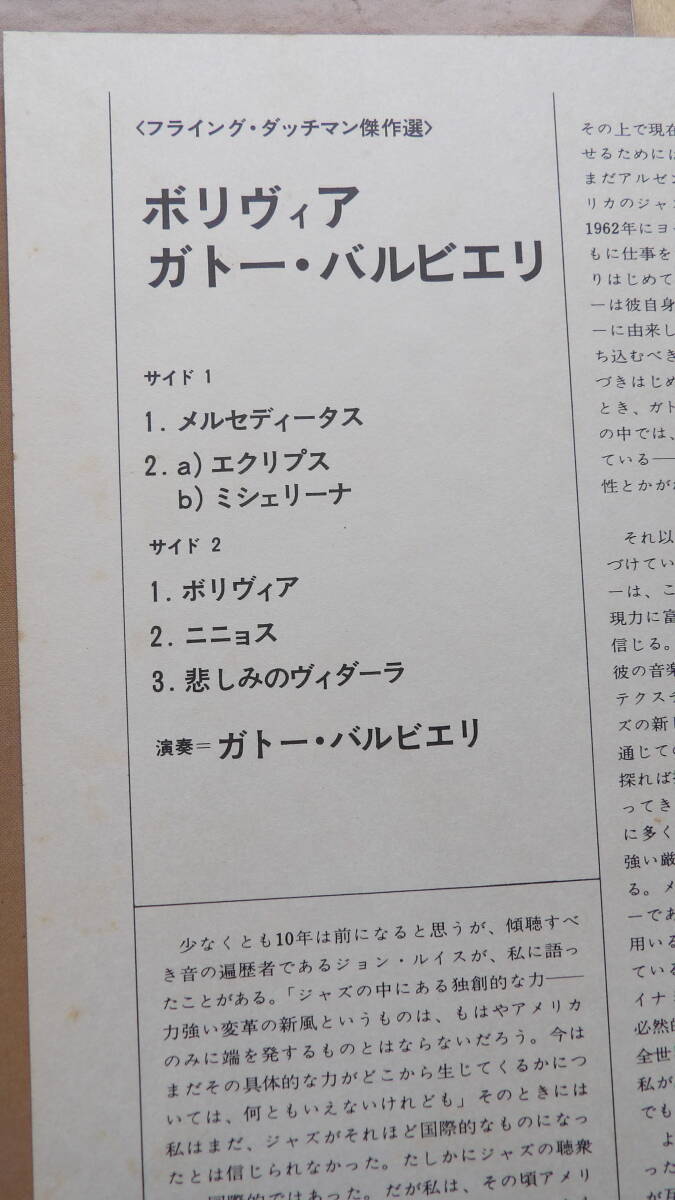 〈フライング・ダッチマン傑作選〉
ボリヴィア
ガトー・バルビエリ
サイド 1
1. メルセディータス
2. a) エクリプス
b) ミシェリーナ
サイド 2
1. ボリヴィア
2. ニニョス
3. 悲しみのヴィダーラ
演奏＝ガトー・バルビエリ
少なくとも10年は前になると思うが、傾聴すべ
き音の遍歴者であるジョン・ルイスが、私に語っ
たことがある。「ジャズの中にある独創的な力——
力強い変革の新風というものは、もはやアメリカ
のみに端を発するものとはならないだろう。今は
まだその具体的な力がどこから生じてくるかにつ
いては、何ともいえないけれども」そのときには
私はまだ、ジャズがそれほど国際的なものになっ
たとは信じられなかった。たしかにジャズの聴衆
国際的ではあった。だが私は、その頃アメリ
その上で現在
せるためには
まだアルゼン
リカのジャン
1962年にヨ
もに仕事を
りはじめて
ーは彼自身
ーに由来し
ち込むべき
づきはじめ
とき、ガト
の中では、
ている——
性とかが
それ以
づけてい
ーは、こ
現力に富
信じる。
彼の音楽
テクスチ
ズの新し
通じての
探れば
ってき
に多く
強い厳
る。メ
ーであ
用いる
ている
イナミ
必然的
全世
私が
でも
よ
った